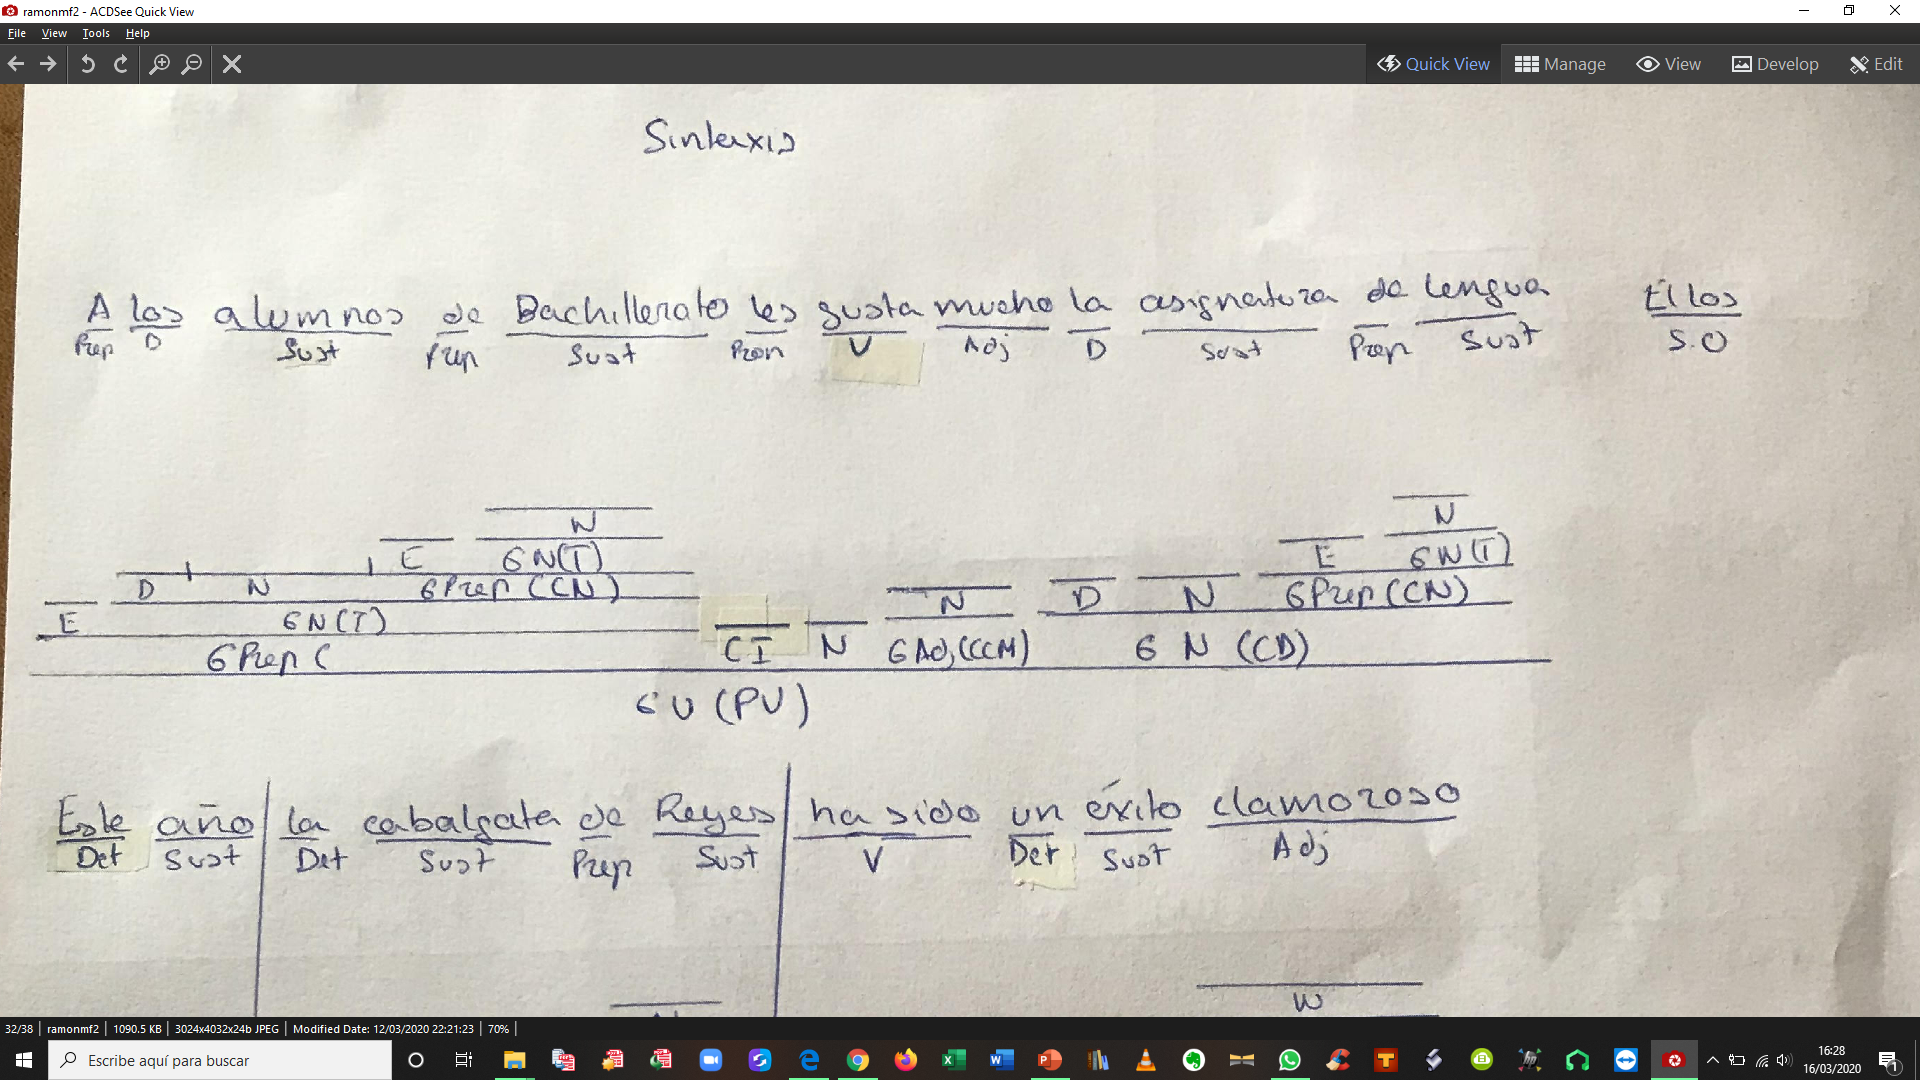 ramonmf2 - ACDSee Quick View
File View Tools Help
Quick View Manage View Develop Edit
Sintaxis
A los alumnos de Bachillerato les gusta mucho la asignatura de lengua Ellos
Prep D Sust Prep Sust Pron V Adj D Sust Prep Sust S.O
N N
E GN(T) E GN(T)
D N GPrep (CN) N D N GPrep (CN)
E GN(T)
GPrep ( CI N GAdj(CCM) G N (CD)
GV (PV)
Este año la cabalgata de Reyes ha sido un éxito clamoroso
Det Sust Det Sust Prep Sust V Det Sust Adj
N
32/38 ramonmf2 1090.5 KB 3024x4032x24b JPEG Modified Date: 12/03/2020 22:21:23 70%
Escribe aquí para buscar
16:28
16/03/2020
1